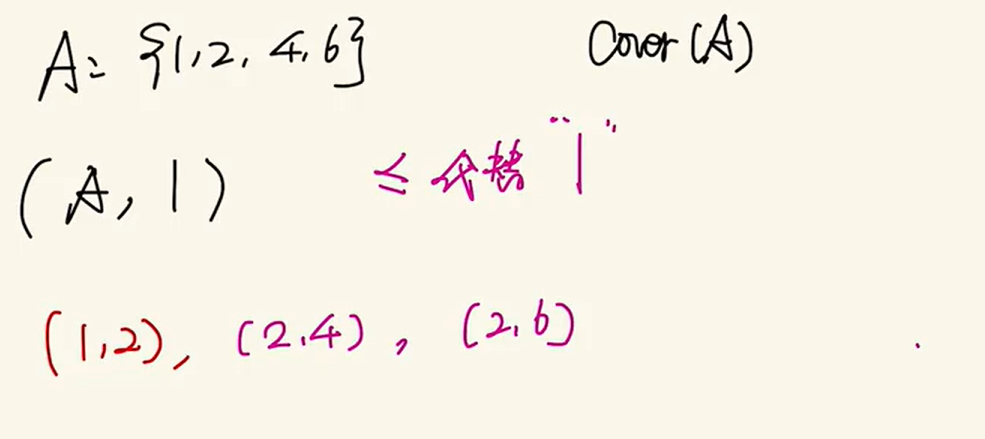 A = {1,2,4,6} Cover(A)
(A, |) ≤ 代替 "|"
(1,2), (2.4), (2.6)